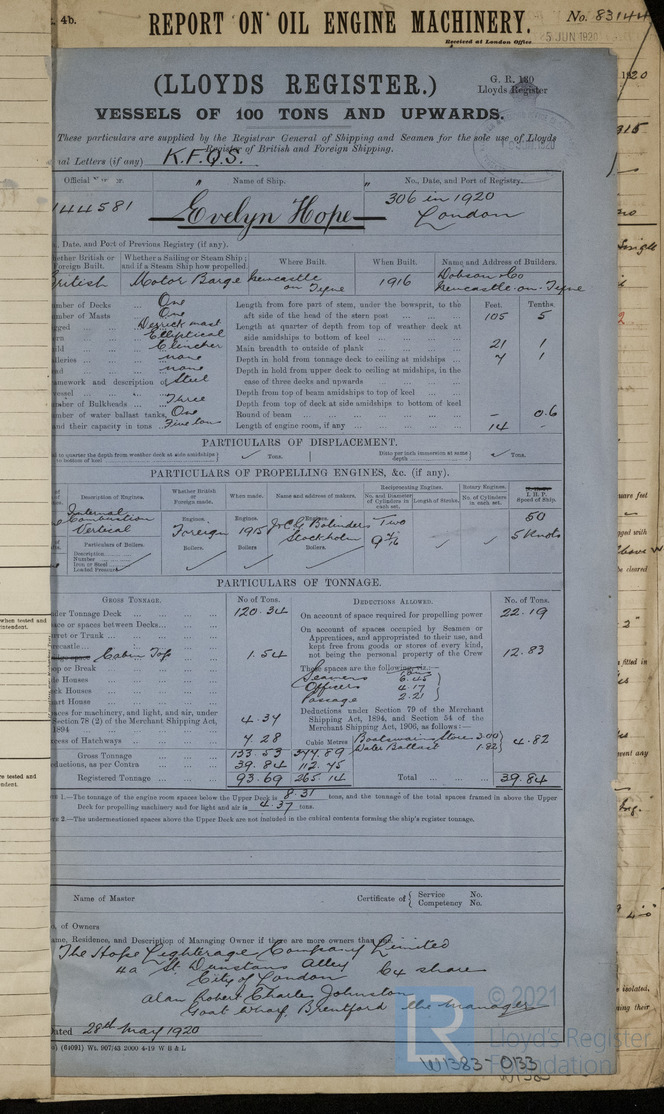 4b. REPORT ON OIL ENGINE MACHINERY. No. 83144
Received at London Office
5 JUN 1920
(LLOYDS REGISTER.)
G. R. 180
Lloyds Register
VESSELS OF 100 TONS AND UPWARDS.
These particulars are supplied by the Registrar General of Shipping and Seamen for the sole use of Lloyds
Register of British and Foreign Shipping.
ial Letters (if any) K.F.Q.S.
Official Name of Ship. No., Date, and Port of Registry.
144581 Evelyn Hope 306 in 1920
London
, Date, and Port of Previous Registry (if any).
hether British or Foreign Built. Whether a Sailing or Steam Ship; and if a Steam Ship how propelled. Where Built. When Built. Name and Address of Builders.
British Motor Barge Newcastle on Tyne 1916 Dobson & Co Newcastle-on-Tyne
mber of Decks One
mber of Masts One
gged Derrick mast
rn Elliptical
ld Clincher
lleries none
ad none
amework and description of Steel
essel
mber of Bulkheads Three
mber of water ballast tanks, One
and their capacity in tons Five tons
Feet. Tenths.
Length from fore part of stem, under the bowsprit, to the
aft side of the head of the stern post 105 5
Length at quarter of depth from top of weather deck at
side amidships to bottom of keel
Main breadth to outside of plank 21 1
Depth in hold from tonnage deck to ceiling at midships 7 1
Depth in hold from upper deck to ceiling at midships, in the
case of three decks and upwards
Depth from top of beam amidships to top of keel
Depth from top of deck at side amidships to bottom of keel
Round of beam - 0.6
Length of engine room, if any 14 -
PARTICULARS OF DISPLACEMENT.
to quarter the depth from weather deck at side amidships
to bottom of keel Tons. Ditto per inch immersion at same
depth Tons.
PARTICULARS OF PROPELLING ENGINES, &c. (if any).
Description of Engines. Whether British or Foreign made. When made. Name and address of makers. Reciprocating Engines. Rotary Engines.
No. and Diameter of Cylinders in each set. Length of Stroke. No. of Cylinders in each set. I.H.P. Speed of Ship.
Internal Combustion Vertical Engines. Foreign Engines. 1915 Engines. J. & C. G. Bolinders Stockholm Two 50
5 Knots
Particulars of Boilers. Boilers. Boilers Boilers.
Description
Number
Iron or Steel
Loaded Pressure
PARTICULARS OF TONNAGE.
GROSS TONNAGE. No of Tons.
der Tonnage Deck 120.34
ace or spaces between Decks
rret or Trunk
recastle
Cabin Top 1.54
op or Break
de Houses
eck Houses
art House
aces for machinery, and light, and air, under
Section 78 (2) of the Merchant Shipping Act,
1894 4.37
cess of Hatchways 7.28
Cubic Metres
Gross Tonnage 133.53 377.89
eductions, as per Contra 39.84 112.75
Registered Tonnage 93.69 265.14
DEDUCTIONS ALLOWED. No. of Tons.
On account of space required for propelling power 22.19
On account of spaces occupied by Seamen or
Apprentices, and appropriated to their use, and
kept free from goods or stores of every kind,
not being the personal property of the Crew 12.83
These spaces are the following, viz.:—
Tons
Seamen 6.45
Officers 4.17
Passage 2.21
Deductions under Section 79 of the Merchant
Shipping Act, 1894, and Section 54 of the
Merchant Shipping Act, 1906, as follows:—
Boatswains Store 3.00
Water Ballast 1.82 4.82
Total 39.84
1.—The tonnage of the engine room spaces below the Upper Deck is 8.31 tons, and the tonnage of the total spaces framed in above the Upper
Deck for propelling machinery and for light and air is 4.37 tons.
2.—The undermentioned spaces above the Upper Deck are not included in the cubical contents forming the ship's register tonnage.
Name of Master Certificate of Service No.
Competency No.
. of Owners
ame, Residence, and Description of Managing Owner if there are more owners than
The Hope Lighterage Company Limited
4a St. Dunstans Alley
City of London 64 shares
Alan Robert Charles Johnston
Goat Wharf, Brentford the manager
ated 28th May 1920
(64091) Wt. 907/43 2000 4-19 W B & L
© 2021
Lloyd's Register
Foundation
W1383-0133